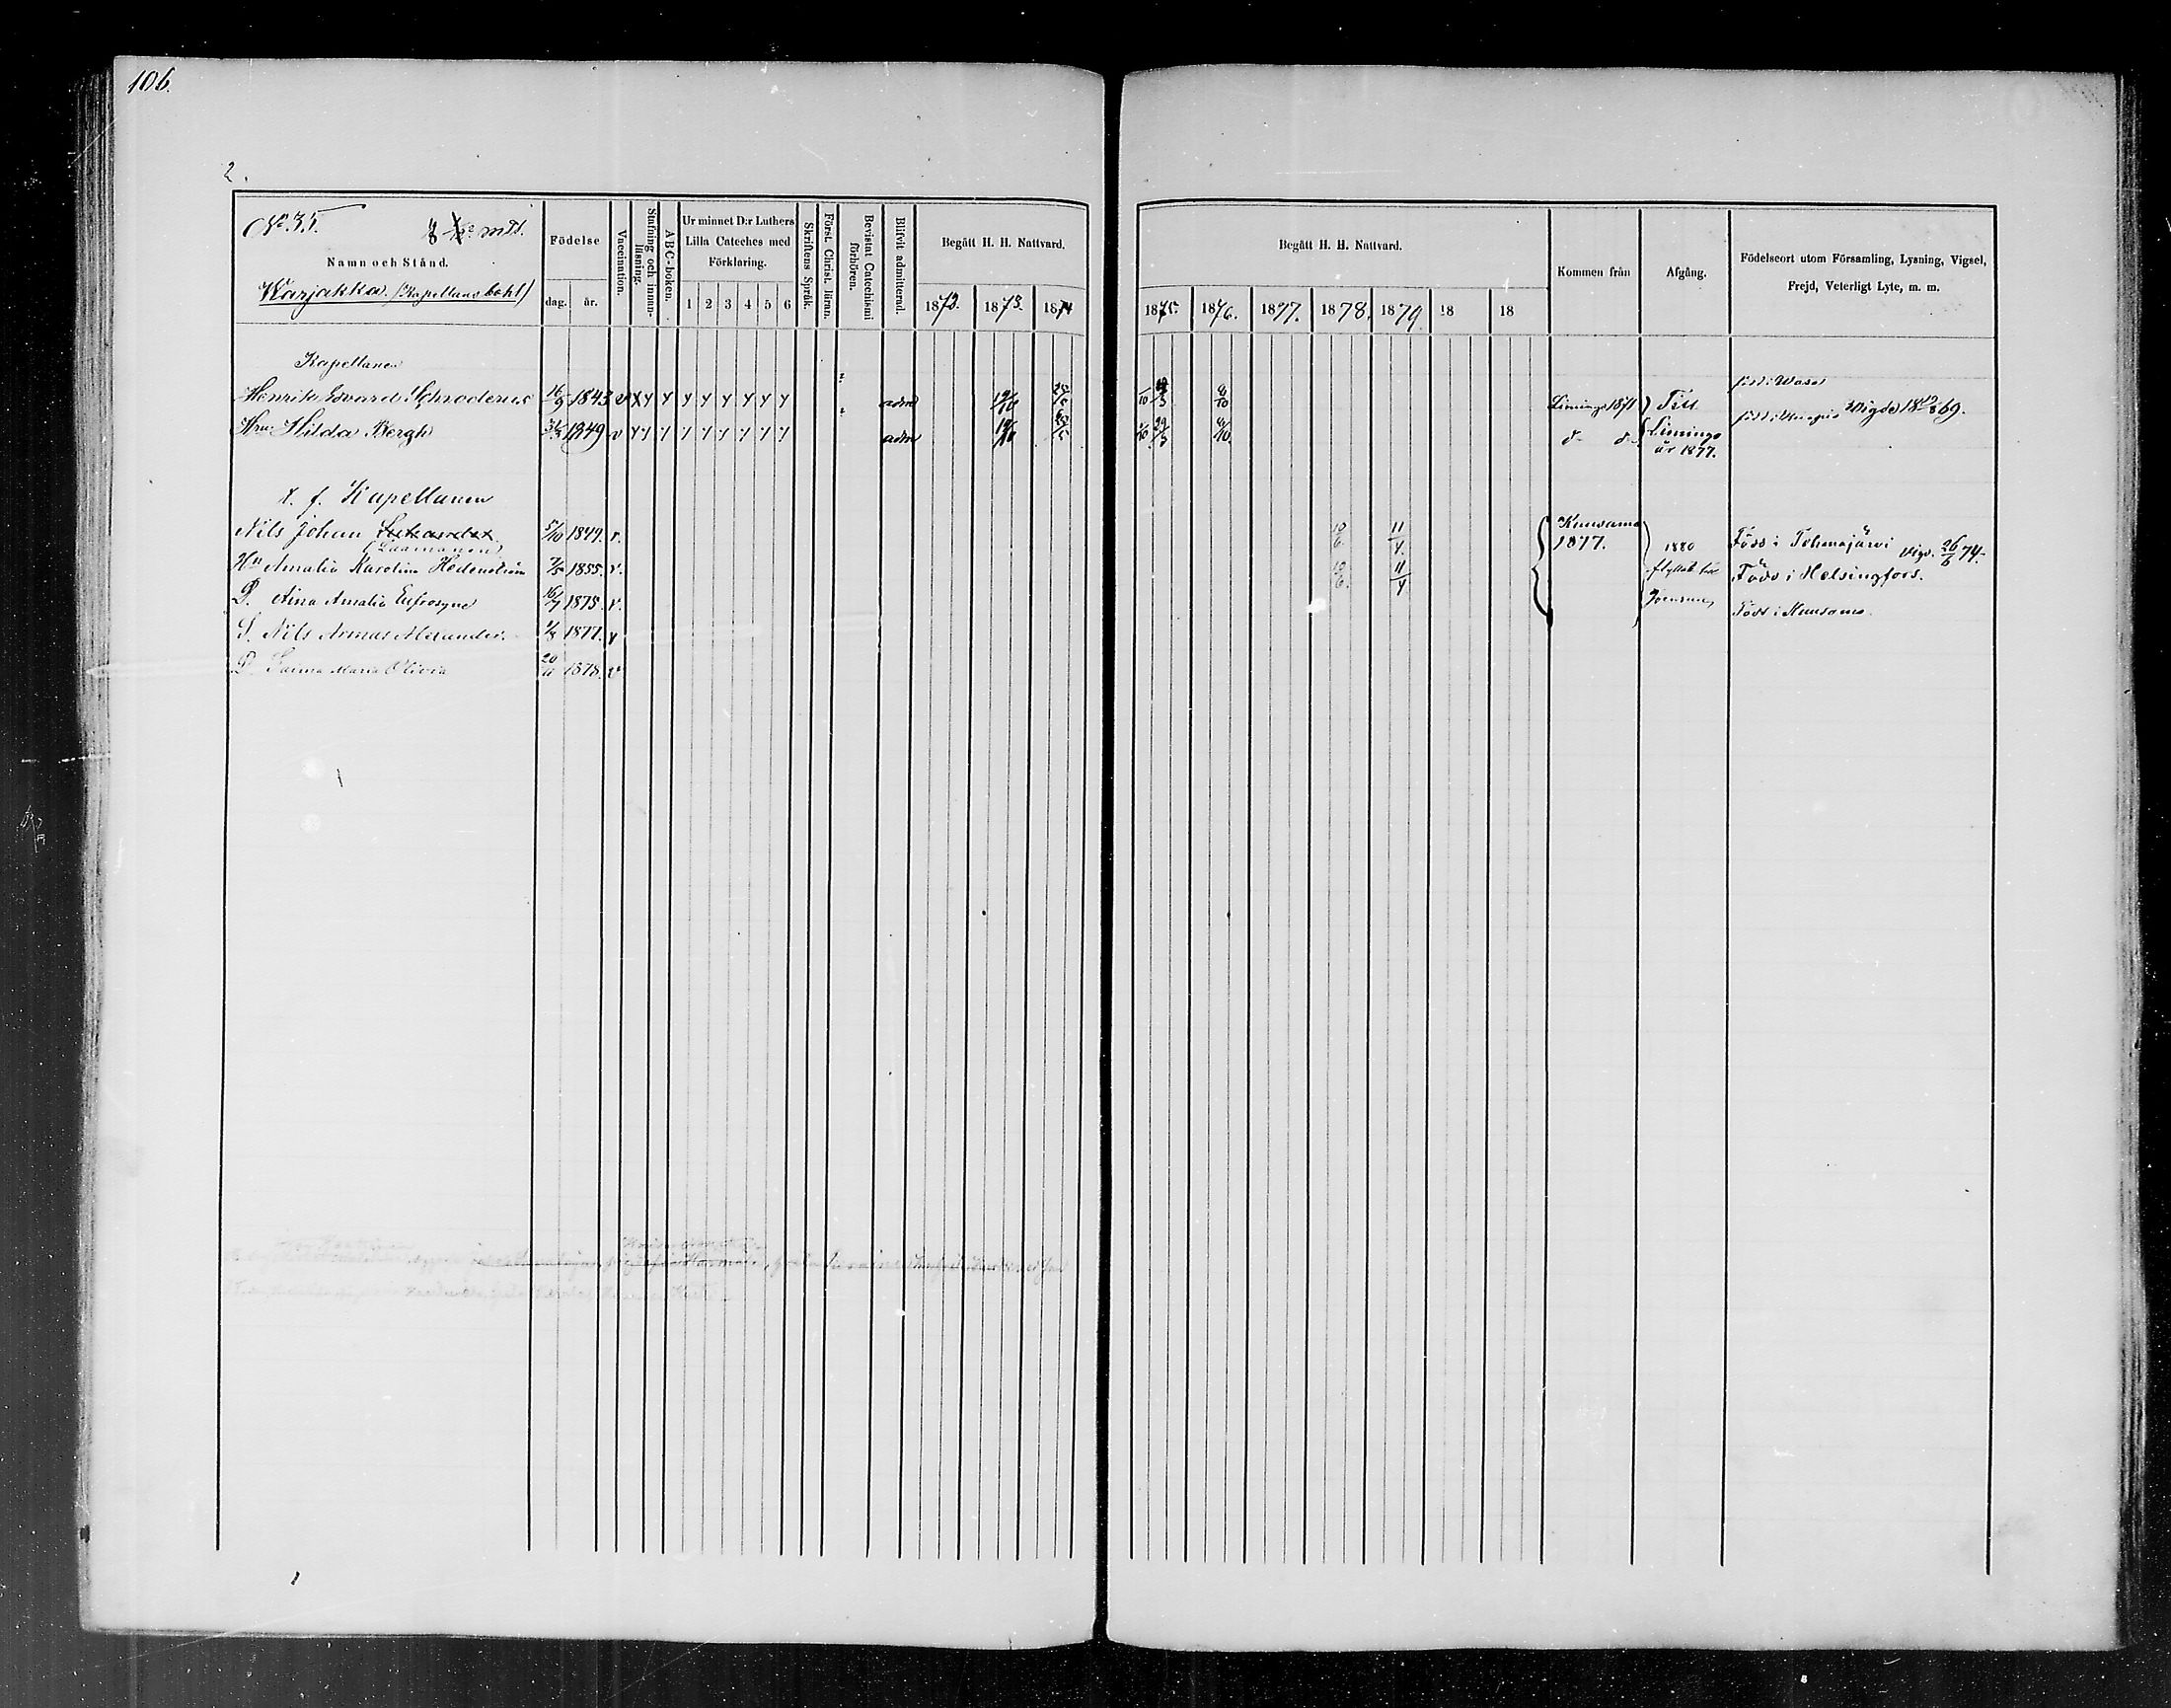 106.
2.
No 35. mtl.
Namn och Stånd.
Karjakka. (Kapellans bohl)
Födelse
dag. år.
Vaccination.
Stafning och innan-läsning.
A B C-boken.
Ur minnet D:r Luthers Lilla Cateches med Förklaring.
1 2 3 4 5 6
Skriftens Språk.
Först. Christ. läran.
Bevistat Catechismi förhören.
Blifvit admitterad.
Begått H. H. Nattvard.
1873. 1874
Begått H. H. Nattvard.
1875. 1876. 1877. 1878. 1879. 18 18
Kommen från
Afgång.
Födelseort utom Församling, Lysning, Vigsel, Frejd, Veterligt Lyte, m. m.
Kapellanen
född i Wasa
Henrik Edvard Schroderus 16/9 1843 v X y y y y y y y y adm 19/10 8/10 Limingo 1871 Till
Hru Hilda Bergh 1849 v y y y y y y y y y adm 19/10 29/3 8/10 d- d- Limingo Vigde 18 12/8 69.
år 1877.
t. f. Kapellanen
Nils Johan 5/10 1849. v. 10/6 11/4. Kuusamo 1877. 1880 Född i Tohmajärvi vigd. 26/6 74.
(Laamanen)
Hu Amalia Karolina Hedenström 7/5 1855. v. 10/6. 11/4 flyttat till Född i Helsingfors.
D. Aina Amalia Eufrosyne 16/7 1875. v. Joensuu Född i Kuusamo.
S. Nils Armas Alexander. 1/8 1877. v
D. Saima Maria Olivia 20/11 1878. v